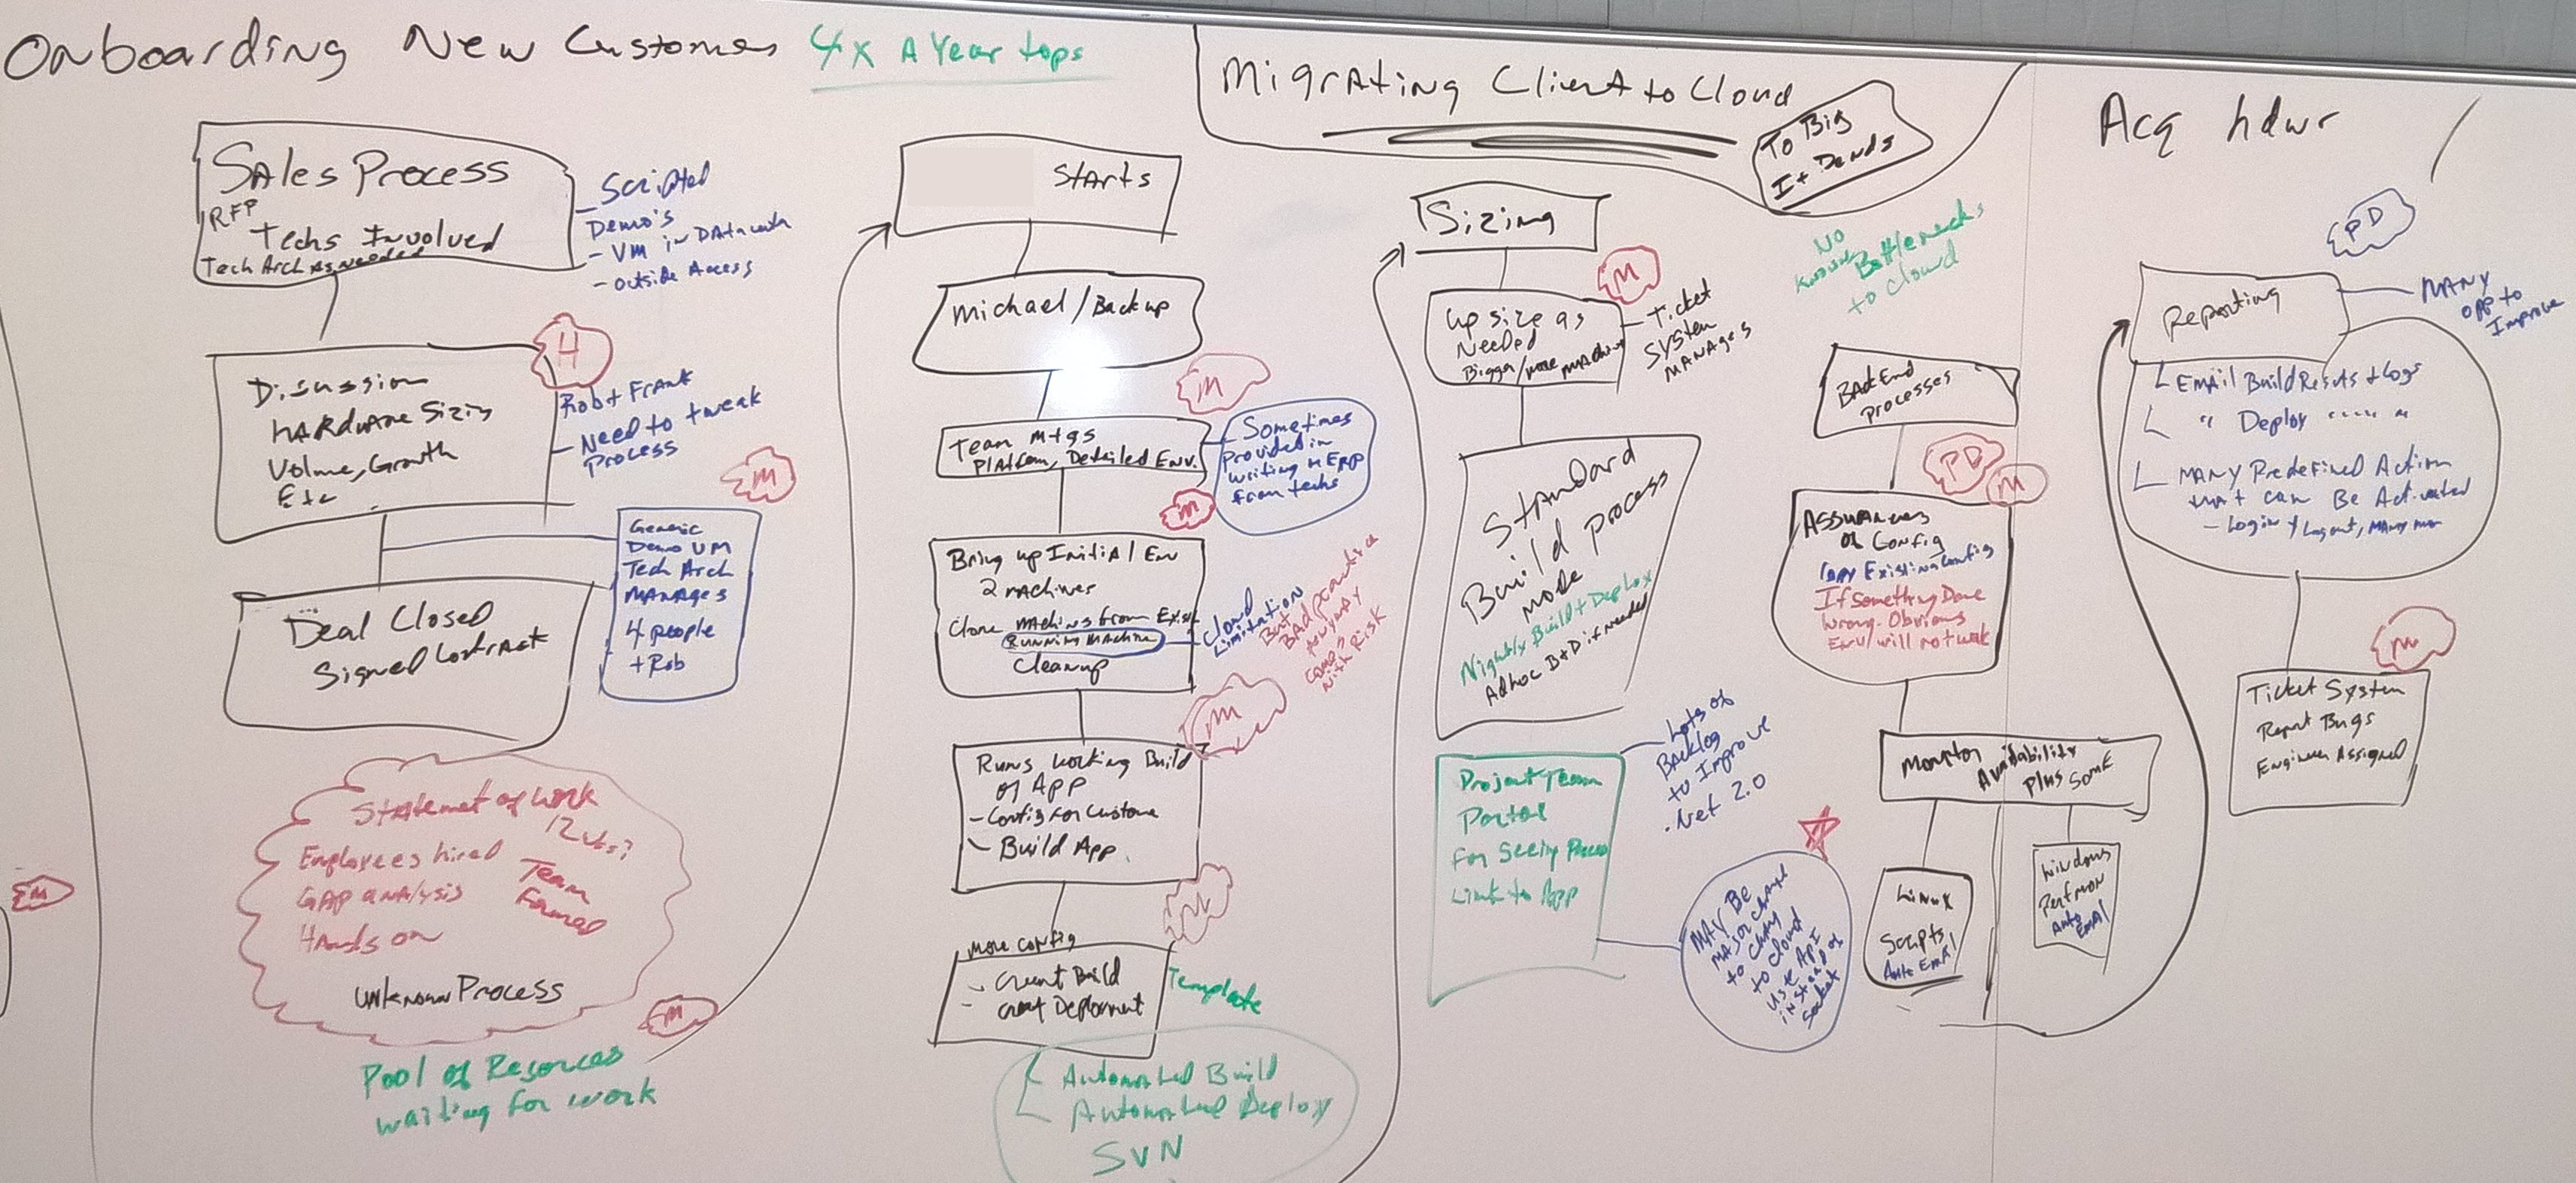 Onboarding New Customer 4x A Year tops
Migrating Client to Cloud
To Big
It Depends
Acq hdwr
Sales Process
RFP
Techs Involved
Tech Arch As needed
Scripted
Demo's
- VM in Data
- Outside Access
H
Discussion
HARDware Sizing
Volume, Growth
Etc
Rob + Frank
- Need to tweak
Process
M
Generic
Demo VM
Tech Arch
MANAges
4 people
+ Rob
Deal Closed
Signed Contract
Statemet of work
12 wks?
Employees hired
Team
Formed
GAP analysis
Hands on
Unknown Process
M
M
Pool of Resorces
waiting for work
Starts
Michael/Backup
M
Team mtgs
Platform, Detailed Env.
Sometimes
Provided in
writing
from techs
M
Bring up Initial Env
2 machines
Clone machines from Exist
Running Machine
Cleanup
Cloud
Limitation
But
BAD practice
Anyway
Comes
with Risk
M
Runs working Build
of App
- Config for Custome
- Build App.
M
more config
- Creat Build
- Creat Deployment
Template
Automated Build
Automated Deploy
SVN
Sizing
M
Up size as
Needed
Bigger/more machine
- Ticket
System
MANAges
No
Known Bottlenecks
to cloud
Standard
Build process
mode
Nightly Build + Deploy
Adhoc B+D if needed
Project Team
Portal
For Seeing
Link to App
Lots of
Backlog
to Improve
.Net 2.0
MAY BE
MAJor
to
to cloud
Use Api
instead of
Socket
BackEnd
Processes
PD
M
ASSurances
of Config
Copy Existing Config
If something Done
wrong. Obvious
Env/will not work
Monitor Availability
Plus SomE
Linux
Scripts
Auto Email
Windows
Perfmon
Auto
Email
PD
Reporting
MANY
opp to
Improve
Email Build Results + Logs
" Deploy
MANY Predefined Action
that can Be Activated
- Login + Logout, MAny mor
M
Ticket System
Report Bugs
Engineer Assigned